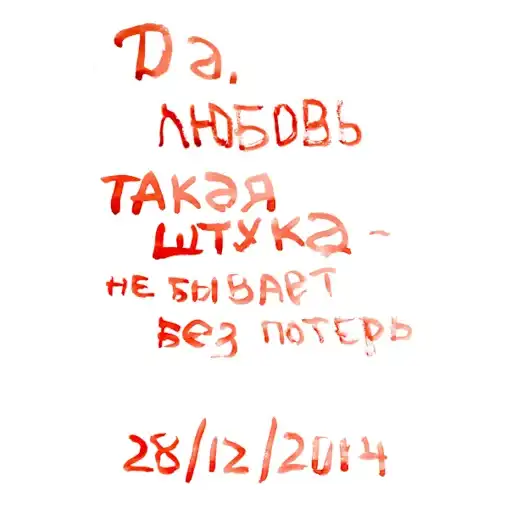 Да,
ЛЮБОВЬ
ТАКАЯ
ШТУКА -
НЕ БЫВАЕТ
БЕЗ ПОТЕРЬ
28/12/2014